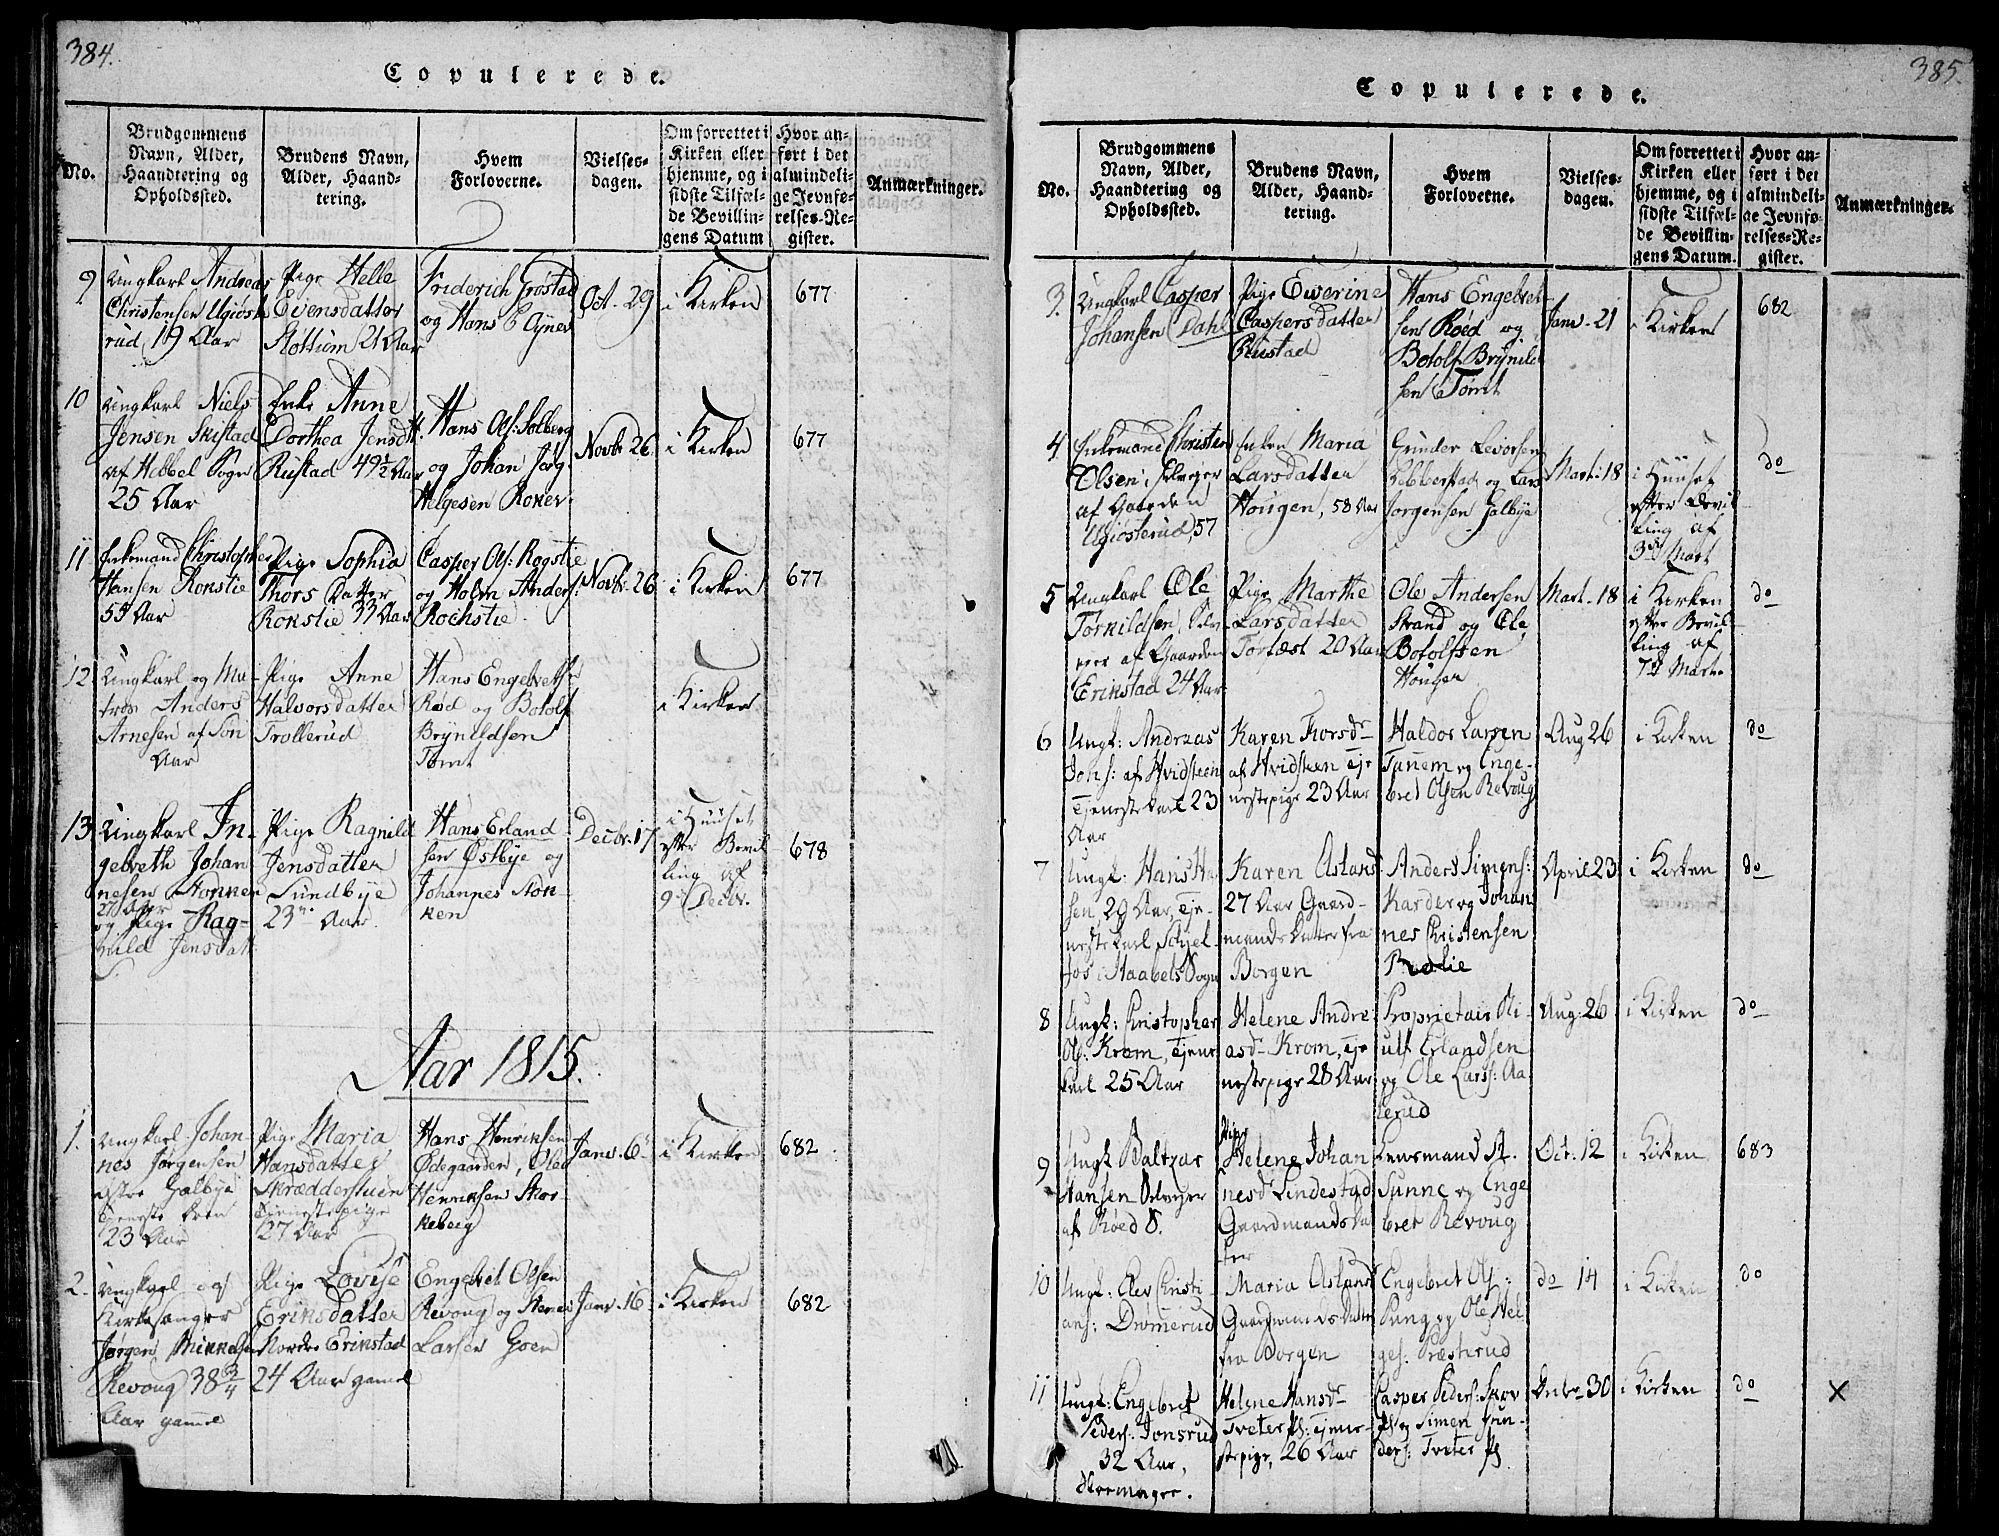 384.
Copulerede.
No.
Brudgommens
Navn, Alder,
Haandtering og
Opholdssted.
Brudens Navn,
Alder, Haand-
tering.
Hvem
Forloverne.
Vielses-
dagen.
Om forrettet i
Kirken eller
hjemme, og i
sidste Tilfæl-
de Bevillin-
gens Datum
Hvor an-
ført i det
almindeli-
ge Jevnfø-
relses-Re-
gister.
Anmærkninger.
9.
Ungkarl Andreas
Christensen Ugiøste
rud, 19 Aar
Pige Helle
Evensdatter
Støttum 21 Aar
Friderich Grøstad
og Hans E Gyner
Oct. 29
i Kirken
677
10
Ungkarl Niels
Jensen Skistad
af Hobbel Sogn
25 Aar
Enke Anne
Dorthea Jensdtr.
Rustad 49½ Aar
Hans Ols: Solberg
og Johan Jørg
Helgesen Roker
Novbr 26
i Kirken
677
11
Enkemand Christopher
Hansen Ronstie
55 Aar
Pige Sophia
Thors Datter
Ronstie 33 Aar
Casper Ols: Rogstie
og Holm Anders:
Rochstie
Novbr. 26
i Kirken
677
12
Ungkarl og Ma-
tros Anders
Arnesen af Son
Aar
Pige Anne
Halvorsdatter
Trollerud
Hans Engebreths
Rød og Botolf
Brynildsen
Tomt
i Kirken
13.
Ungkarl In-
gebreth Johan
nesen Stonken
27 Aar
og Pige Rag-
nild Jensdatt
Pige Ragnild
Jensdatter
Sundbye
23 Aar
Hans Erland-
sen Østbye og
Johannes Ston-
ken
Decbr. 17
i Huuset
efter Bevil
ling af
9 Decbr.
678
Aar 1815.
1.
Ungkarl Johan-
nes Jørgensen
østre Galbye
Tieneste
23 Aar
Pige Maria
Hansdatter
Skrædderstuen
Tienestepige
27 Aar
Hans Henriksen
Ødegaarden, Ole
Henriksen Stor-
keberg
Janv. 6
i Kirken
682
2.
Ungkarl og
Kirkesanger
Jørgen Mikkelsen
Revoug 38¾
Aar gamel
Pige Lovise
Eriksdatter
Nordre Erikstad
24 Aar gamel
Engebret Olsen
Revoug og
Larsen Goen
Janv. 16
i Kirken
682
385.
Copulerede.
No.
Brudgommens
Navn, Alder,
Haandtering og
Opholdssted.
Brudens Navn,
Alder, Haand-
tering.
Hvem
Forloverne.
Vielses-
dagen.
Om forrettet i
Kirken eller
hjemme, og i
sidste Tilfæl-
de Bevillin-
gens Datum.
Hvor an-
ført i det
almindeli-
ge Jevnfø-
relses-Re-
gister.
Anmærkninger.
3.
Ungkarl Casper
Johansen Dahl
Pige Ewerine
Caspersdatter
Rustad
Hans Engebret-
sen Røed og
Botolf Brynild
sen Tomt
Janv. 21
i Kirken
682
4
Enkemand Christen
Olsen Selveyer
af Gaarden
Ugiøsterud, 57
Enken Maria
Larsdatter
Hougen, 58 Aar
Gunder Levorsen
og Lars
Jorgensen Galbye
Mart. 18
i Huuset
efter Bevil
ling af
3d Mart
do
5
Ungkarl Ole
Torkildsen, Selv-
eyer af Gaarden
Erikstad 24 Aar
Pige Marthe
Larsdatter
Tortæst 20 Aar
Ole Andersen
Strand og Ole
Botolfsen
Houger
Mart. 18
i Kirken
efter Bevil-
ling af
7d Mart.
do
6
Ungk: Andreas
Jons: af Hvidsteen
Tjenestekarl 23
Aar
Karen Thorsdr
af Hvidsteen Tje
nestepige 23 Aar
Haldor Larsen
Tunem og Enge-
bret Olsen Revoug
Aug 26
i Kirken
do
7
Ungk: Hans Ha
sen, 20 Aar, Tje-
nestekarl
i Haabels Sogn
Karen Aslaks
27 Aar Gaard-
mands Datter fra
Borgen
Anders Simens:
Karder og Johan
nes Christensen
Rødlie
April 23
i Kirken
do
8
Ungk: Christopher
Ols: Krom, Tjene
karl 25 Aar
Helene Andre
asd- Krom, Tje
nestepige 28 Aar
Proprietair Oli-
ulf Erlandsen
og Ole Larss: Aa
lerud
Aug: 26
i Kirken
do
9
Ungk Baltzar
Hansen Selveyer
af Røed S.
Pige
Helene Johan
nesdr Lindestad
Gaardmandsda
tter
Lensmand A.
Sunne og Enge
bret Revoug
Oct. 12
i Kirken
683
10
Ungk: Elev Christi-
ans: Drømerud
Maria Aslaks
Gaardmands Datter
fra Borgen
Engebret Ols:
Pung og Ole Hel
ges: Præsterud
do 14
i Kirken
do
11
Ungk: Engebret
Peders: Jonsrud
32 Aar,
Skomager.
Helene Hansdr
Tveter Pl: Tjene-
stepige, 26 Aar
Casper Peders: Skov
Pl og Simen Gun-
ders: Tveter Pl
Decbr 30
i Kirken
do
X